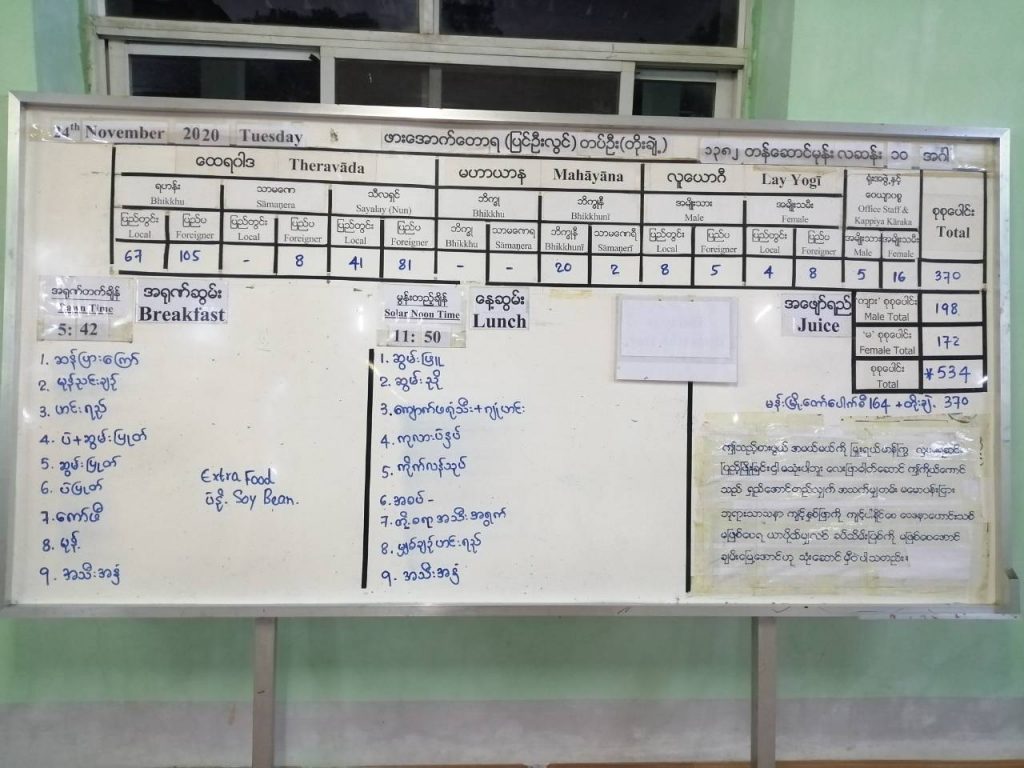 24th November 2020 Tuesday ဖားအောက်တောရ (ပြင်ဦးလွင်) တပ်ဦး(တိုးချဲ့) ၁၃၈၂ တန်ဆောင်မုန်း လဆန်း ၁၀ အင်္ဂါ
ထေရဝါဒ Theravāda မဟာယာန Mahāyāna လူယောဂီ Lay Yogī ရုံးအဖွဲ့နှင့် ဝေယျာဝစ္စ Office Staff & Kappiya Kāraka စုစုပေါင်း Total
ရဟန်း Bhikkhu သာမဏေ Sāmaṇera သီလရှင် Sayalay (Nun) ဘိက္ခု Bhikkhu ဘိက္ခုနီ Bhikkhunī အမျိုးသား Male အမျိုးသမီး Female
ပြည်တွင်း Local ပြည်ပ Foreigner ပြည်တွင်း Local ပြည်ပ Foreigner ပြည်တွင်း Local ပြည်ပ Foreigner ဘိက္ခု Bhikkhu သာမဏေရ Sāmaṇera ဘိက္ခုနီ Bhikkhunī သာမဏေရီ Sāmaṇerī ပြည်တွင်း Local ပြည်ပ Foreigner ပြည်တွင်း Local ပြည်ပ Foreigner အမျိုးသား Male အမျိုးသမီး Female
67 105 - 8 41 81 - - 20 2 8 5 4 8 5 16 370
အရုဏ်တက်ချိန် Dawn Time 5: 42
အရုဏ်ဆွမ်း Breakfast
1. ဆန်ပြားကြော်
2. မုန့်ညင်းချဉ်
3. ဟင်းရည်
4. ပဲ+ဆွမ်းပြုတ်
5. ဆွမ်းပြုတ်
6. ပဲပြုတ်
7. ကော်ဖီ
8. မုန့်
9. အသီးအနှံ
Extra Food
ပဲနို့ Soy Bean.
မွန်းတည့်ချိန် Solar Noon Time 11: 50
နေ့ဆွမ်း Lunch
1. ဆွမ်းဖြူ
2. ဆွမ်းညို
3. ကျောက်ဖရုံသီး+ဟင်း
4. ကုလားပဲနှပ်
5. ကိုက်လန်သုပ်
6. အစပ် -
7. တို့စရာ အသီးအရွက်
8. မျှစ်ချဉ်ဟင်းရည်
9. အသီးအနှံ
အဖျော်ရည် Juice
'ကျား' စုစုပေါင်း Male Total 198
'မ' စုစုပေါင်း Female Total 172
စုစုပေါင်း Total *534
164 + တိုးချဲ့ 370
ဤသည့်စားဖွယ် အမယ်မယ်ကို
သည် ရှည်အောင်တည်လျှက် အသက်မျှတမ်း မမောပန်းငြား
ချမ်းမြေ့အောင်ဟု သုံးဆောင် မှီဝဲပါသတည်း။